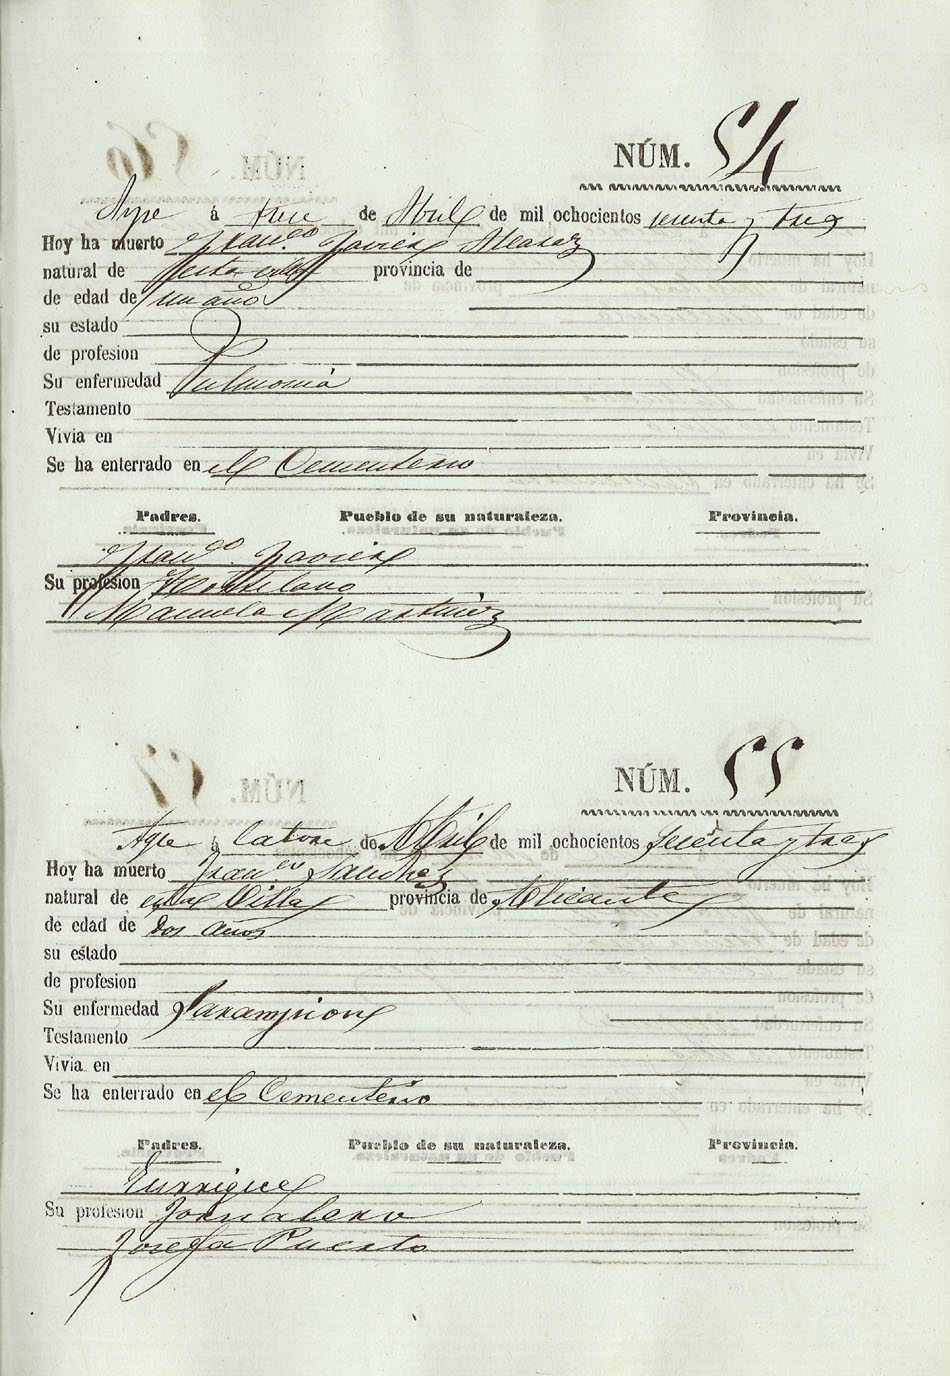 NÚM. 54
Aspe á trece de Abril de mil ochocientos sesenta y tres
Hoy ha muerto Fran.co Javier Alcaraz
natural de esta villa provincia de
de edad de un año
su estado
de profesion
Su enfermedad Pulmonia
Testamento
Vivia en
Se ha enterrado en el Cementerio
Padres. Pueblo de su naturaleza. Provincia.
Fran.co Javier
Su profesion Hortelano
Manuela Martinez
NÚM. 55
Aspe á Catorce de Abril de mil ochocientos sesenta y tres
Hoy ha muerto Fran.co Sanchez
natural de esta Villa provincia de Alicante
de edad de Dos años
su estado
de profesion
Su enfermedad Sarampion
Testamento
Vivia en
Se ha enterrado en el Cementerio
Padres. Pueblo de su naturaleza. Provincia.
Enrrique
Su profesion Jornalero
Josefa Puerto